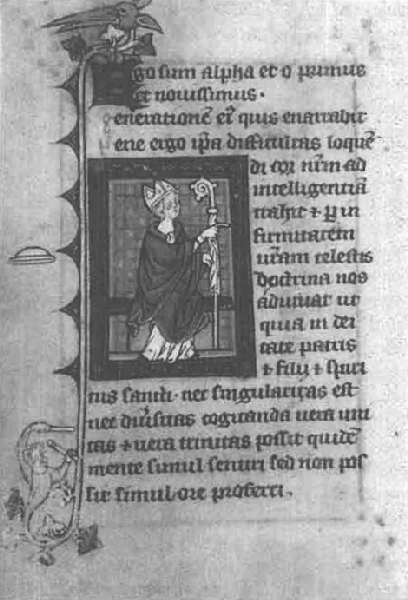 Ego sum alpha et o primus
et nouissimus.
enerationē eiꝰ quis enarrabit
ene ergo ip̄a difficultas loquē
di cor nr̄m ad
intelligentiā
trahit ⁊ ꝑ in
firmitatem
nr̄am celestis
doctrina nos
adiuuat ut
quia in dei
tate patris
⁊ filij ⁊ spiri
tus sancti. nec singularitas est
nec diu̾sitas cogitanda uera uni
tas ⁊ uera trinitas possit quidē
mente simul sentiri sed non pos
sit simul ore proferri.